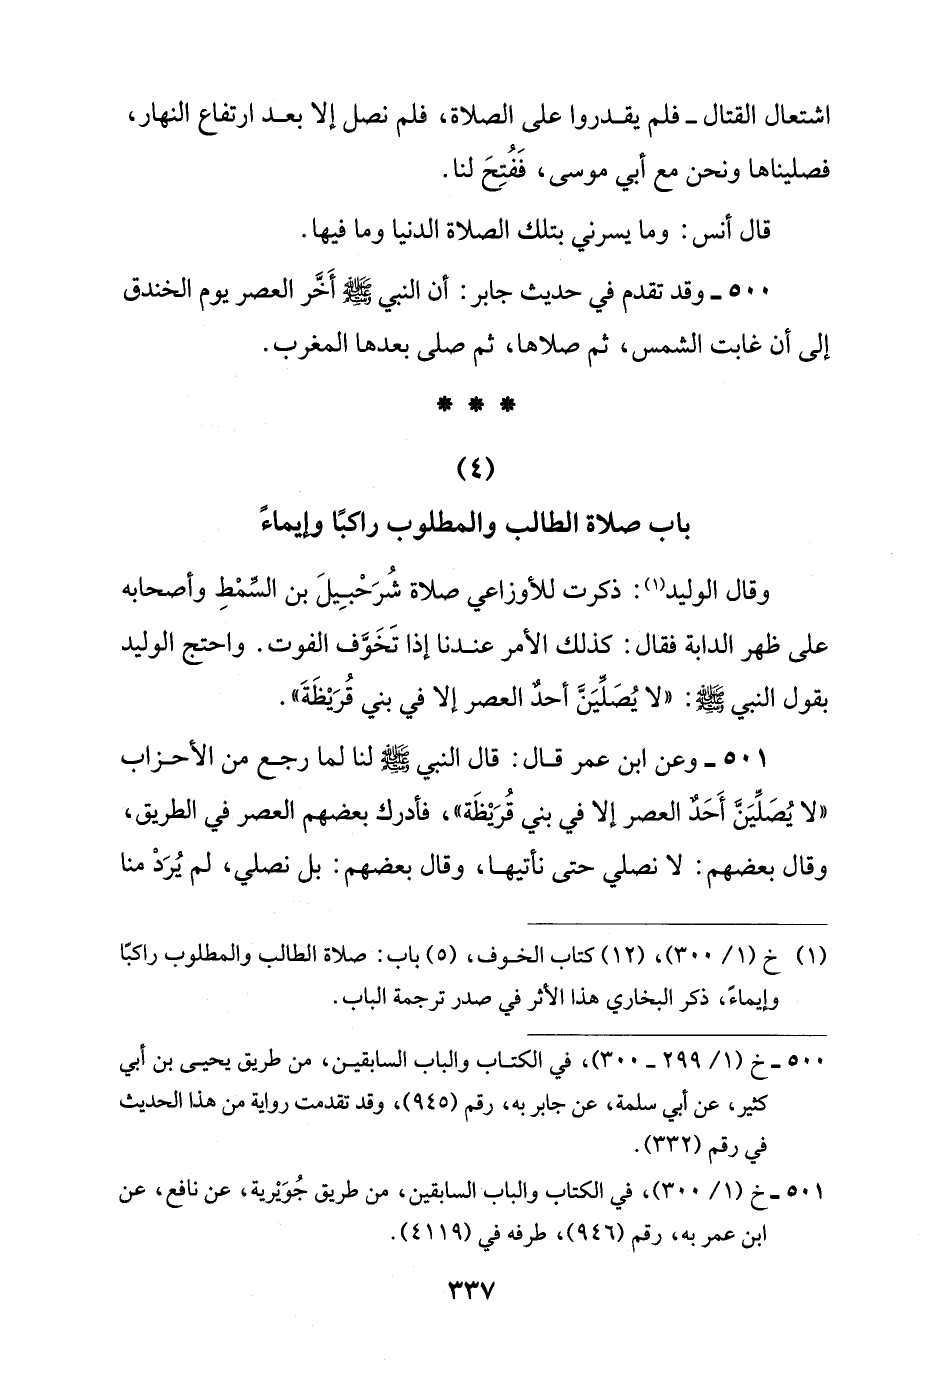 اشتعال القتال ـ فلم يقدروا على الصلاة، فلم نصل إلا بعد ارتفاع النهار،
فصليناها ونحن مع أبي موسى، فَفُتِحَ لنا.
قال أنس: وما يسرني بتلك الصلاة الدنيا وما فيها.
٥٠٠ ـ وقد تقدم في حديث جابر: أن النبي ﷺ أَخَّر العصر يوم الخندق
إلى أن غابت الشمس، ثم صلاها، ثم صلى بعدها المغرب.
* * *
(٤)
باب صلاة الطالب والمطلوب راكبًا وإيماءً
وقال الوليد(١): ذكرت للأوزاعي صلاة شُرَحْبِيلَ بن السِّمْطِ وأصحابه
على ظهر الدابة فقال: كذلك الأمر عندنا إذا تَخَوَّف الفوت. واحتج الوليد
بقول النبي ﷺ: «لا يُصَلِّيَنَّ أحدٌ العصر إلا في بني قُرَيْظَةَ».
٥٠١ ـ وعن ابن عمر قال: قال النبي ﷺ لنا لما رجع من الأحزاب
«لا يُصَلِّيَنَّ أَحَدٌ العصر إلا في بني قُرَيْظَة»، فأدرك بعضهم العصر في الطريق،
وقال بعضهم: لا نصلي حتى نأتيها، وقال بعضهم: بل نصلي، لم يُرَدْ منا
(١) خ (١/ ٣٠٠)، (١٢) كتاب الخوف، (٥) باب: صلاة الطالب والمطلوب راكبًا
وإيماءً، ذكر البخاري هذا الأثر في صدر ترجمة الباب.
٥٠٠ ـ خ (١/ ٢٩٩ ـ ٣٠٠)، في الكتاب والباب السابقين، من طريق يحيى بن أبي
كثير، عن أبي سلمة، عن جابر به، رقم (٩٤٥)، وقد تقدمت رواية من هذا الحديث
في رقم (٣٣٢).
٥٠١ ـ خ (١/ ٣٠٠)، في الكتاب والباب السابقين، من طريق جُوَيْرية، عن نافع، عن
ابن عمر به، رقم (٩٤٦)، طرفه في (٤١١٩).
٣٣٧